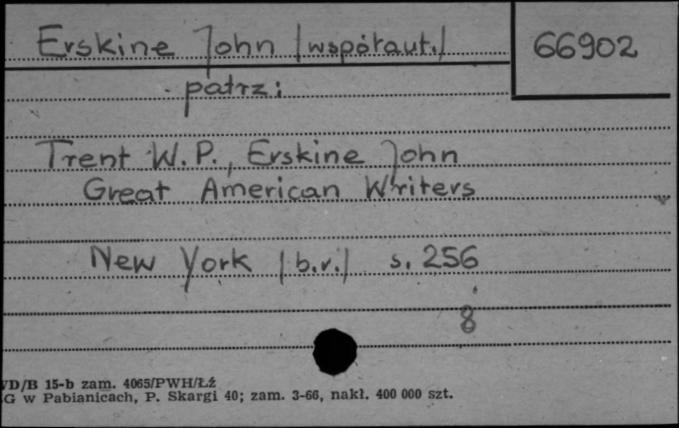 Erskine John /współaut./ 66902
patrz:
Trent W.P., Erskine John
Great American Writers
New York /b.r./ s. 256
8
D/B 15-b zam. 4065/PWH/Łź
G w Pabianicach, P. Skargi 40; zam. 3-66, nakł. 400 000 szt.